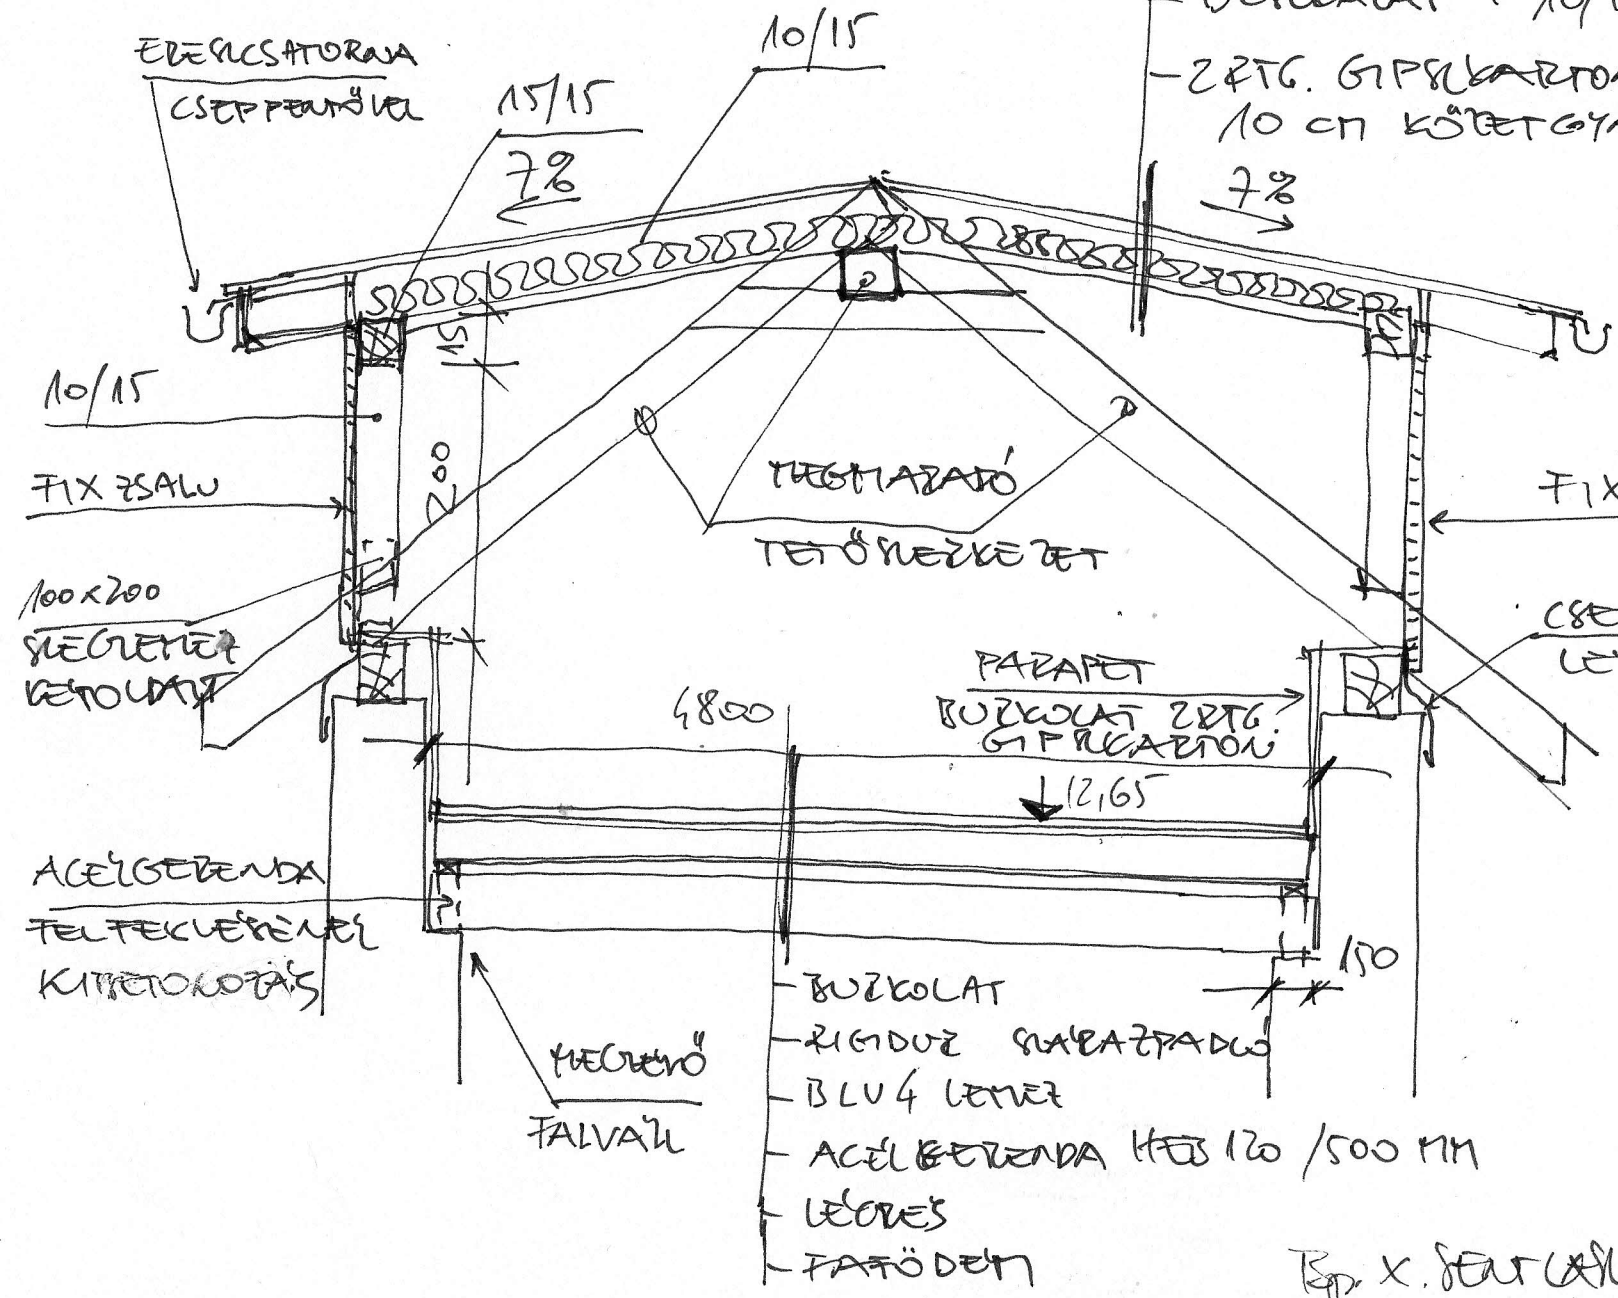 ERESZCSATORNA
CSEPPENTŐVEL
15/15
7%
10/15
- 2 RTG. GIPSZKARTO
10 CM KŐZETGYA
7%
15
10/15
FIX ZSALU
200
100x200
SZEGLEMEZ
KÉTOLDALT
MEGMARADÓ
TETŐSZERKEZET
FIX
CSE
LE
PARAPET
BURKOLAT 2 RTG.
GIPSZKARTON
4800
12,65
ACÉLGERENDA
FELFEKVÉSÉNÉL
KIBETONOZÁS
150
MEGLEVŐ
FALVÁLL
- BURKOLAT
- RIGIDUR SZÁRAZPADLÓ
- BLU 4 LEMEZ
- ACÉLGERENDA HEB 120 /500 MM
- LÉGRÉS
- FAFÖDÉM
Bp. X.